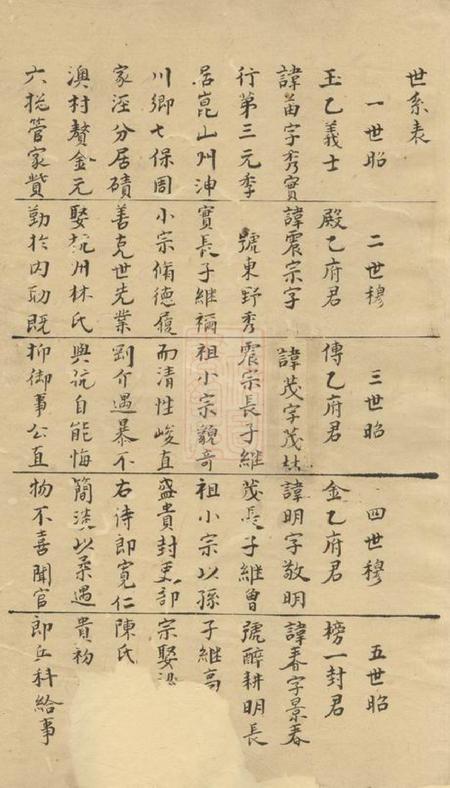 世系表
一世昭
玉乙義士
諱苗字秀實
行第三元季
居崑山州沖
川鄉七保周
家涇分居磧
澳村贅金元
六提管家貲
二世穆
殿乙府君
諱震宗字
號東野秀
實長子繼禰
小宗脩德履
善克世先業
娶杭州林氏
勤於內助既
三世昭
傳乙府君
諱茂字茂林
震宗長子繼
祖小宗貌奇
而清性峻直
剛介遇暴不
與抗自能悔
抑御事公直
四世穆
金乙府君
諱明字敬明
茂長子繼曾
祖小宗以孫
盛貴封吏部
右侍郎寬仁
簡淡以柔遇
物不喜聞官
五世昭
榜一封君
諱春字景春
號醉耕明長
子繼高
宗娶
陳氏
貴初
郎兵科給事